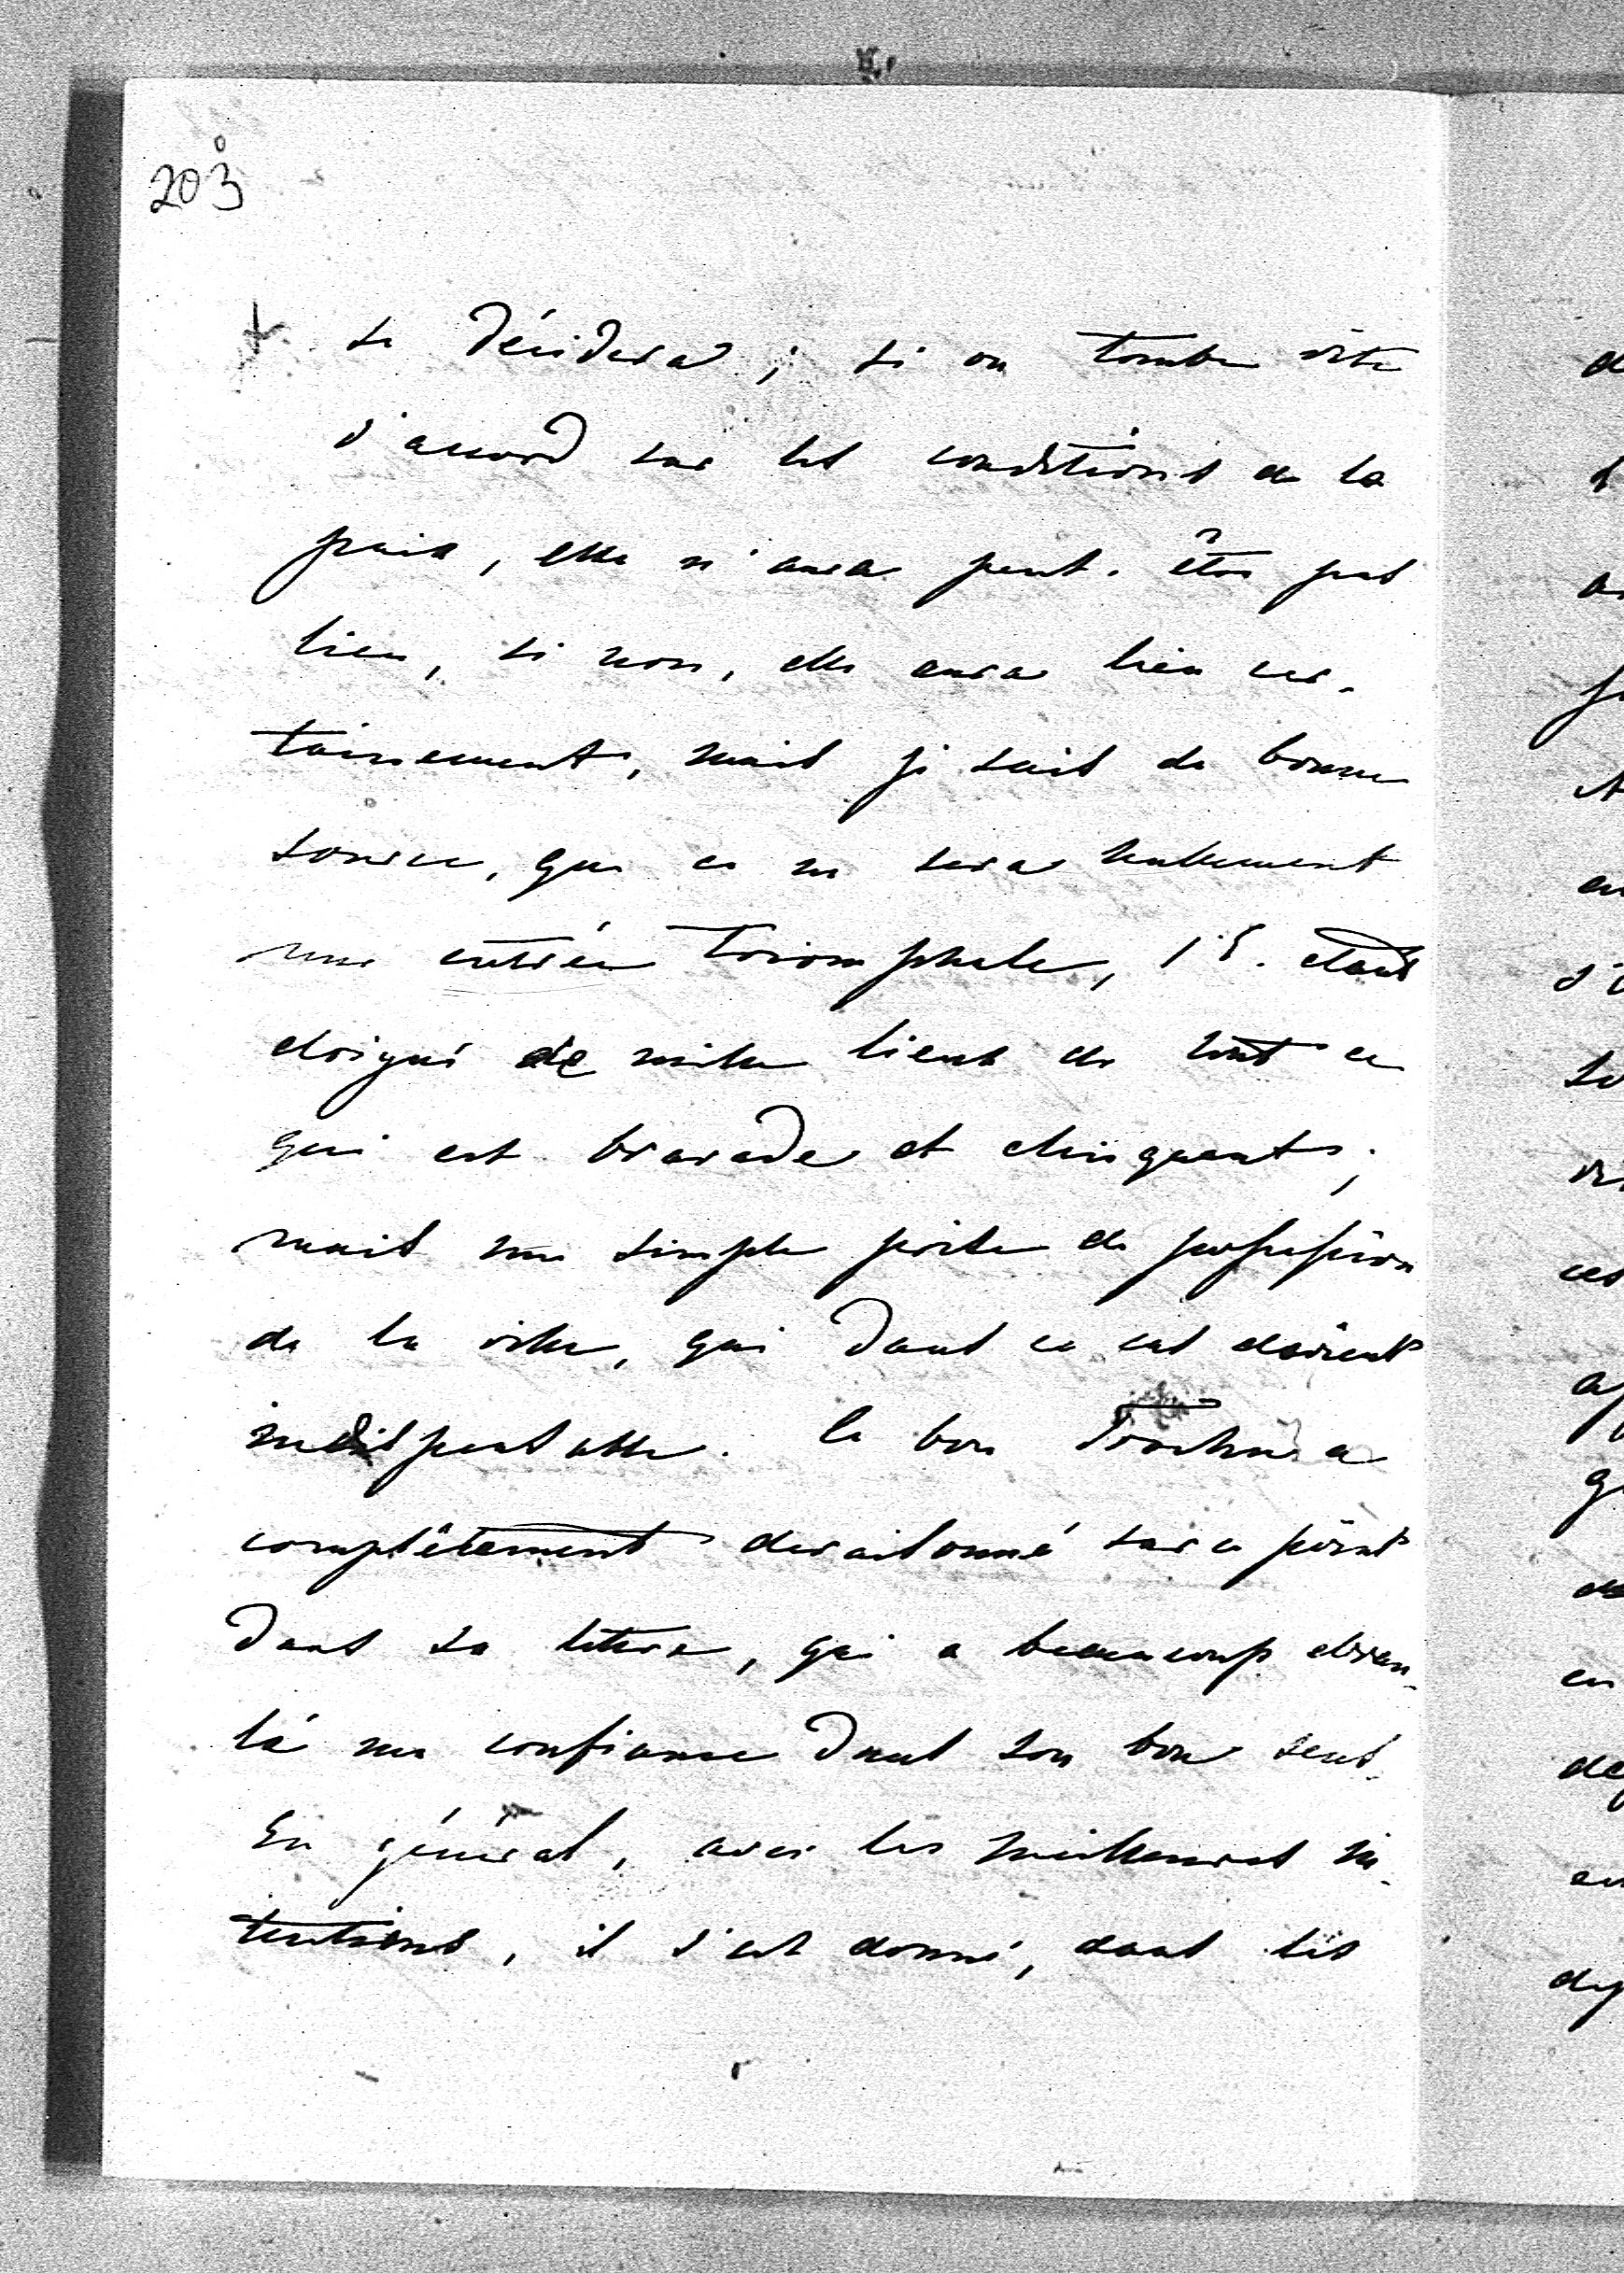 203
se décidera ; si on tombe vite
d'accord sur les conditions de la
paix, elle n'aura peut-être pas
lieu, si non, elle aura lieu cer-
tainement, mais je sais de bonne
source, que ce ne sera nullement
une entrée triomphale, étant
eloigné de mille lieux de tout ce
qui est bravade et clinquant ;
mais une simple prise de possession
de la ville, qui dans ce cas devient
indispensable. Le bon Trochu a
complètement deraisonné sur ce point
dans sa lettre, qui a beaucoup ebran-
lé ma confiance dans son bon sens.
En général, avec les meilleures in-
tentions, il s'est donné, dans les